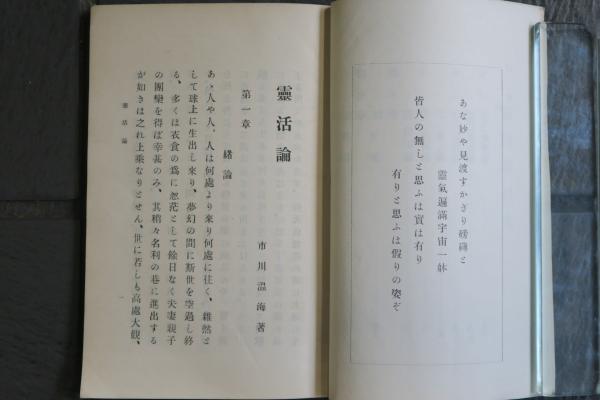 あな妙や見渡すかぎり磅礴と
靈氣遍滿宇宙一躰
皆人の無しと思ふは實は有り
有りと思ふは假りの姿ぞ
靈活論
市川溫海著
第一章 緖論
あゝ人や人、人は何處より來り何處に往く、雜然と
して球上に生出し來り、夢幻の間に斯世を空過し終
る、多くは衣食の爲に怱茫として餘日なく夫妻親子
の團欒を得ば幸甚のみ、其稍々名利の巷に進出する
が如きは之れ上乘なりとせん、世に若しも高處大觀、
靈活論
一